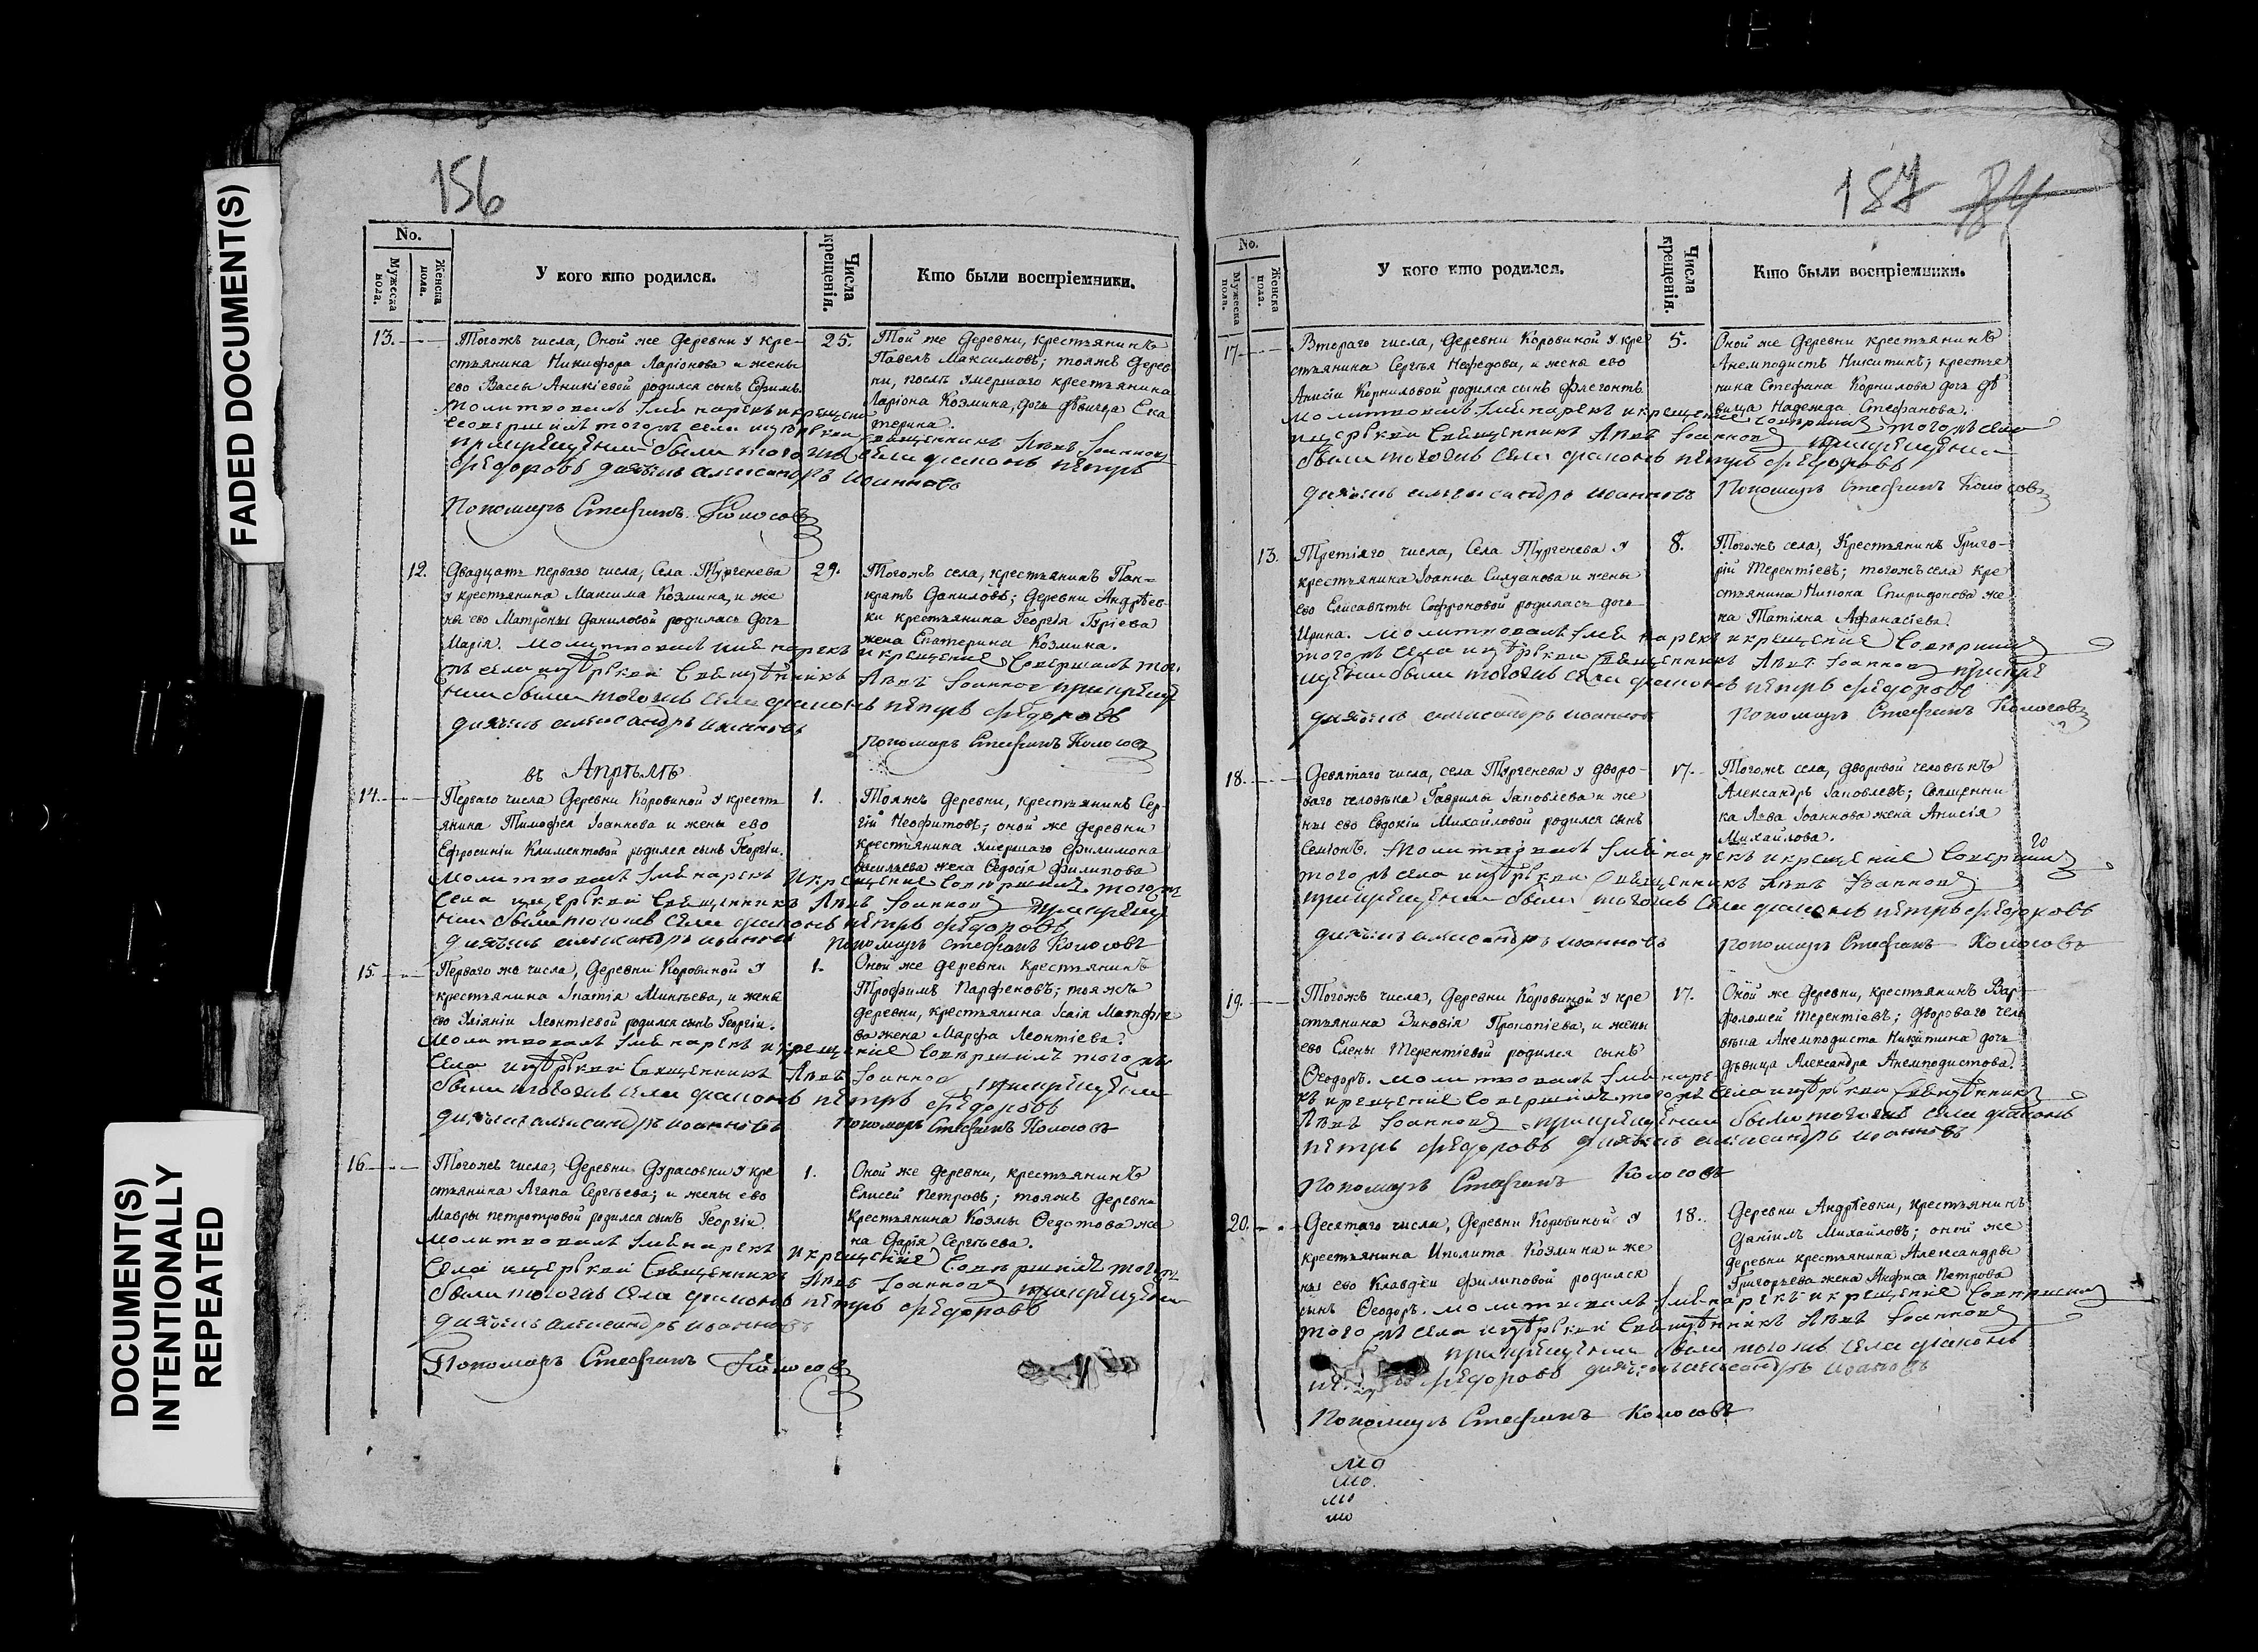 FADED DOCUMENT(S)
DOCUMENT(S)
INTENTIONALLY
REPEATED
156
No.
Мужеска пола.
Женска пола.
У кого кто родился.
Числа крещенія.
Кто были воспріемники.
13.
Тогожъ числа, Оной же деревни у кре-
стьянина Никифора Ларіонова и жены
его Вассы Аникіевой родился сынъ Ефимъ
молитвовалъ имя нарекъ и крещение
совершилъ тогожъ села церкви священникъ Левъ Іоанновъ
при крещении были тогожъ села диаконъ петръ
федоровъ дьячекъ александръ иоанновъ
Пономарь Стефанъ Колосовъ
25.
Той же деревни, крестьянинъ
Павелъ Максимовъ; тояжъ дерев
ни, послѣ умершаго крестьянина
Ларіона Козмина, дочь дѣвица Ека
терина.
12.
Двадцать перваго числа, Села Тургенева
у крестьянина Максима Козмина, и же
ны ево Матроны Даниловой родилась дочь
Марія. молитвовалъ имя нарекъ и крещение совершилъ того
жъ села церкви священникъ Левъ Іоанновъ при креще
нии были тогожъ села диаконъ петръ федоровъ
дьячекъ александръ иоанновъ
пономарь Стефанъ Колосовъ
29.
Тогожъ села, крестьянинъ Пан-
кратъ Даниловъ; деревни Андрѣев-
ки крестьянина Георгія Гуріева
жена Екатерина Козмина.
въ Апрѣлѣ
14.
Перваго числа деревни Коровиной у кресть
янина Тимофея Іоаннова и жены ево
Ефросиніи Климентовой родился сынъ Георгіи.
молитвовалъ имя нарекъ и крещение совершилъ тогожъ
села церкви священникъ Левъ Іоанновъ при креще
нии были тогожъ села диаконъ петръ федоровъ
дьячекъ александръ иоанновъ пономарь стефанъ Колосовъ
1.
Тояжъ деревни, крестьянинъ Сер-
гій Неофитовъ; оной же деревни
крестьянина умершаго Филимона
Васильева жена Ѳедосія Филипова
15.
Перваго же числа, деревни Коровиной у
крестьянина Ипатія Минѣева, и жены
ево Уліяніи Леонтіевой родился сынъ Георгіи.
молитвовалъ имя нарекъ и крещение совершилъ тогожъ
села церкви священникъ Левъ Іоанновъ при крещении
были тогожъ села диаконъ петръ федоровъ
дьячекъ александръ иоанновъ пономарь Стефанъ Колосовъ
1.
Оной же деревни крестьянинъ
Трофимъ Парфеновъ; тояжъ
деревни, крестьянина Исаія Матфѣе
ва жена Марфа Леонтіева.
16
Тогожъ числа, деревни Дурасовки у кре
стьянина Агапа Сергѣева; и жены ево
Мавры петротровой родился сынъ Георгіи.
молитвовалъ имя нарекъ и крещение совершилъ тогожъ
села церкви священникъ Левъ Іоанновъ при крещении
были тогожъ села диаконъ петръ федоровъ
дьячекъ александръ иоанновъ
Пономарь Стефанъ Колосовъ
1.
Оной же деревни, крестьянинъ
Елисей Петровъ; тояжъ деревни
крестьянина Козмы Ѳедотова же
на Дарія Сергѣева.
187
No.
Мужеска пола.
Женска пола.
У кого кто родился.
Числа крещенія.
Кто были воспріемники.
17
Втораго числа, деревни Коровиной у кре
стьянина Сергѣя Нефедова, и жены ево
Анисіи Корниловой родился сынъ Флегонтъ
молитвовалъ имя нарекъ и крещение совершилъ тогожъ села
церкви священникъ Левъ Іоанновъ при крещении
были тогожъ села диаконъ петръ федоровъ
дьячекъ александръ иоанновъ Пономарь Стефанъ Колосовъ
5.
Оной же деревни крестьянинъ
Анемподистъ Никитинъ; крестья
нина Стефана Корнилова дочь дѣ
вица Надежда Стефанова.
13.
Третіяго числа, Села Тургенева у
крестьянина Іоанна Силуанова и жены
ево Елисаветы Софроновой родилась дочь
Ирина. молитвовалъ имя нарекъ и крещение совершилъ
тогожъ села церкви священникъ Левъ Іоанновъ при кре
щении были тогожъ села диаконъ петръ федоровъ
дьячекъ александръ иоанновъ пономарь Стефанъ Колосовъ
8.
Тогожъ села, Крестьянинъ Григо-
рій Терентіевъ; тогожъ села кре
стьянина Нипона Спиридонова же
на Татіяна Афанасіева.
18.
Девятаго числа, села Тургенева у дворо-
ваго человѣка Гаврилы Іаковлева и же
ны ево Евдокіи Михайловой родился сынъ
Семіонъ. молитвовалъ имя нарекъ и крещение совершилъ
тогожъ села церкви священникъ Левъ Іоанновъ
при крещении были тогожъ села диаконъ петръ федоровъ
дьячекъ александръ иоанновъ пономарь Стефанъ Колосовъ
17.
Тогожъ села, дворовой человѣкъ
Александръ Іаковлевъ; Священни
ка Льва Іоаннова жена Анисія
Михайлова.
20
19.
Тогожъ числа, деревни Коровиной у кре
стьянина Зиновія Прокопіева, и жены
ево Елены Терентіевой родился сынъ
Ѳеодоръ. молитвовалъ имя наре
къ и крещение совершилъ тогожъ села церкви священникъ
Левъ Іоанновъ при крещении были тогожъ села диаконъ
петръ федоровъ дьячекъ александръ иоанновъ
Пономарь Стефанъ Колосовъ
17.
Оной же деревни, крестьянинъ Вар-
фоломей Терентіевъ; двороваго чело
вѣка Анемподиста Никитина дочь
дѣвица Александра Анемподистова.
20.
Десятаго числа, деревни Коровиной у
крестьянина Иполита Козмина и же
ны ево Клавдіи Филиповой родился
сынъ Ѳеодоръ. молитвовалъ имя нарекъ и крещение совершилъ
тогожъ села церкви священникъ Левъ Іоанновъ
при крещении были тогожъ села диаконъ
федоровъ дьячекъ александръ иоановъ
Пономарь Стефанъ Колосовъ
18.
Деревни Андрѣевки, крестьянинъ
Даніилъ Михайловъ; оной же
деревни крестьянина Александры
Григорьева жена Анфиса Петрова
мо
мо
мо
мо